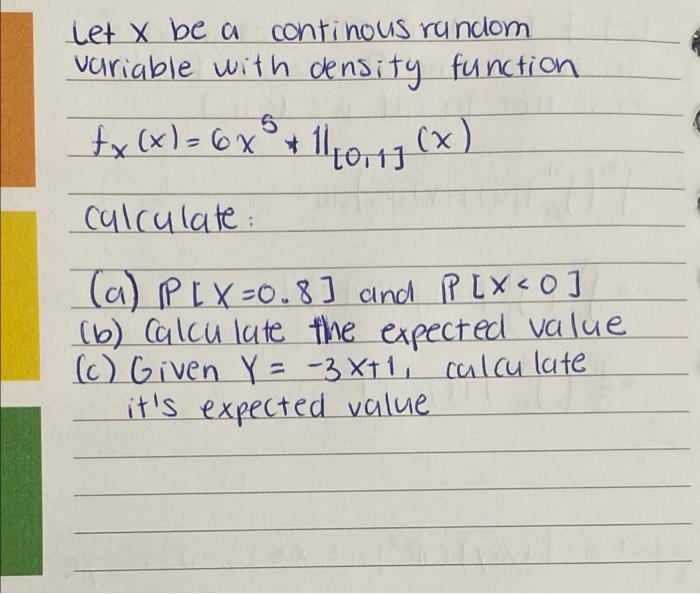 Let X be a continous random
variable with density function
fx (x) = 6x⁵ * 1l[0,1] (x)
calculate:
(a) ℙ[X=0.8] and ℙ[X<0]
(b) Calculate the expected value
(c) Given Y = -3X+1, calculate
it's expected value